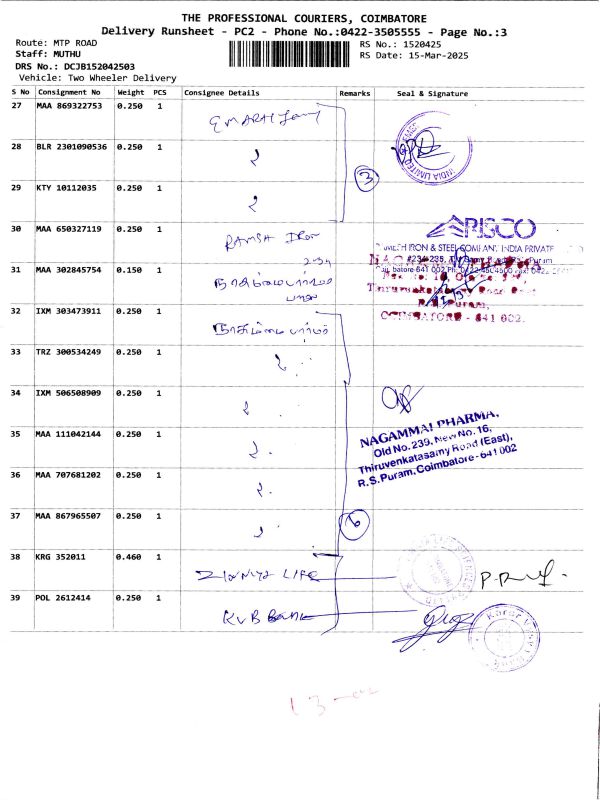 THE PROFESSIONAL COURIERS, COIMBATORE
Delivery Runsheet - PC2 - Phone No.:0422-3505555 - Page No.:3
Route: MTP ROAD
RS No.: 1520425
Staff: MUTHU
RS Date: 15-Mar-2025
DRS No.: DCJB152042503
Vehicle: Two Wheeler Delivery
S No Consignment No Weight PCS Consignee Details Remarks Seal & Signature
27 MAA 869322753 0.250 1
INDIA LIMITED
28 BLR 2301090536 0.250 1
3
29 KTY 10112035 0.250 1
30 MAA 650327119 0.250 1 RAMSA IRON
ARISCO
IRON & STEEL COMPANY INDIA PRIVATE
31 MAA 302845754 0.150 1
COIMBATORE - 641 002.
32 IXM 303473911 0.250 1
33 TRZ 300534249 0.250 1
34 IXM 506508909 0.250 1
35 MAA 111042144 0.250 1
NAGAMMAI PHARMA,
Old No. 239, New No. 16,
Thiruvenkatasamy Road (East),
R.S. Puram, Coimbatore - 641 002
36 MAA 707681202 0.250 1
37 MAA 867965507 0.250 1
6
38 KRG 352011 0.460 1 LIFE
39 POL 2612414 0.250 1 KVB Bank
13